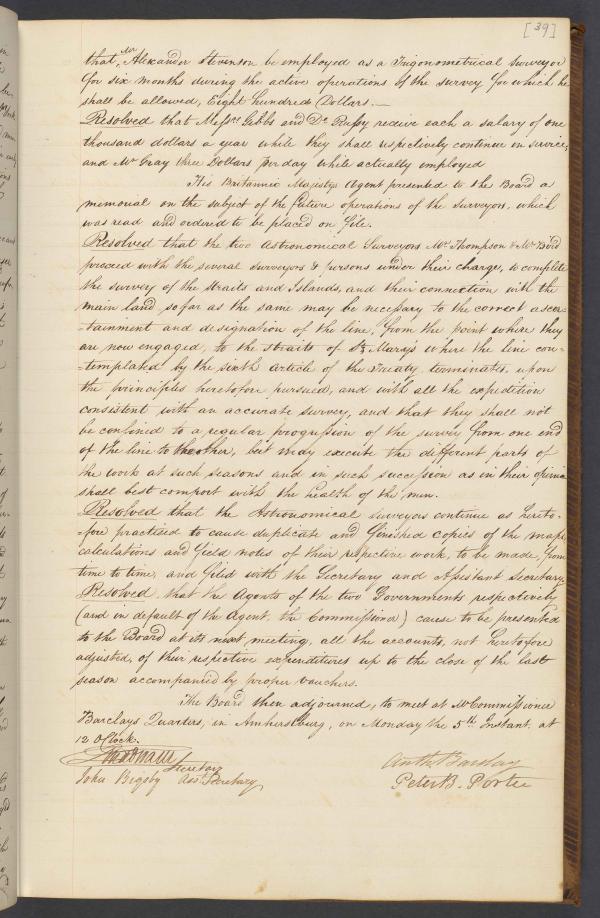 [39]
that, Mr Alexander Stevenson be employed as a Trigonometrical surveyor
for six months during the active operations of the survey for which he
shall be allowed, Eight hundred Dollars.—
Resolved that Messrs Gibbs and De Russy recieve each a salary of one
thousand dollars a year while they shall respectively continue in service,
and Mr Gray three Dollars per day while actually employed
His Britannic Majestys Agent presented to the Board a
memorial on the subject of the future operations of the Surveyors, which
was read and ordered to be placed on file.
Resolved that the two Astronomical Surveyors Mr Thompson & Mr Bird
proceed with the several surveyors & persons under their charge, to complete
the survey of the straits and Islands, and their connection with the
main land so far as the same may be necessary to the correct ascer-
-tainment and designation of the line, from the point where they
are now engaged, to the straits of St Mary's where the line con-
-templated by the sixth article of the Treaty terminates, upon
the principles heretofore pursued, and with all the expedition
consistent with an accurate survey, and that they shall not
be confined to a regular progression of the survey from one end
of the line to the other, but may execute the different parts of
the work at such seasons and in such succession as in their opinion
shall best comport with the health of the men.
Resolved that the Astronomical surveyors continue as hereto-
-fore practised to cause duplicate and finished copies of the maps
calculations and field notes of their respective work, to be made, from
time to time, and filed with the Secretary and Assistant Secretary.
Resolved that the Agents of the two Governments respectively
(and in default of the Agent, the Commissioner) cause to be presented
to the Board at its next meeting, all the accounts, not heretofore
adjusted, of their respective expenditures up to the close of the last
season accompanied by proper vouchers.
The Board then adjourned, to meet at Mr Commissioner
Barclays Quarters, in Amherstburg, on Monday the 5th Instant, at
12 O'Clock.
Secretary
John Bigsby Asst Secretary
Anth Barclay
Peter B. Porter